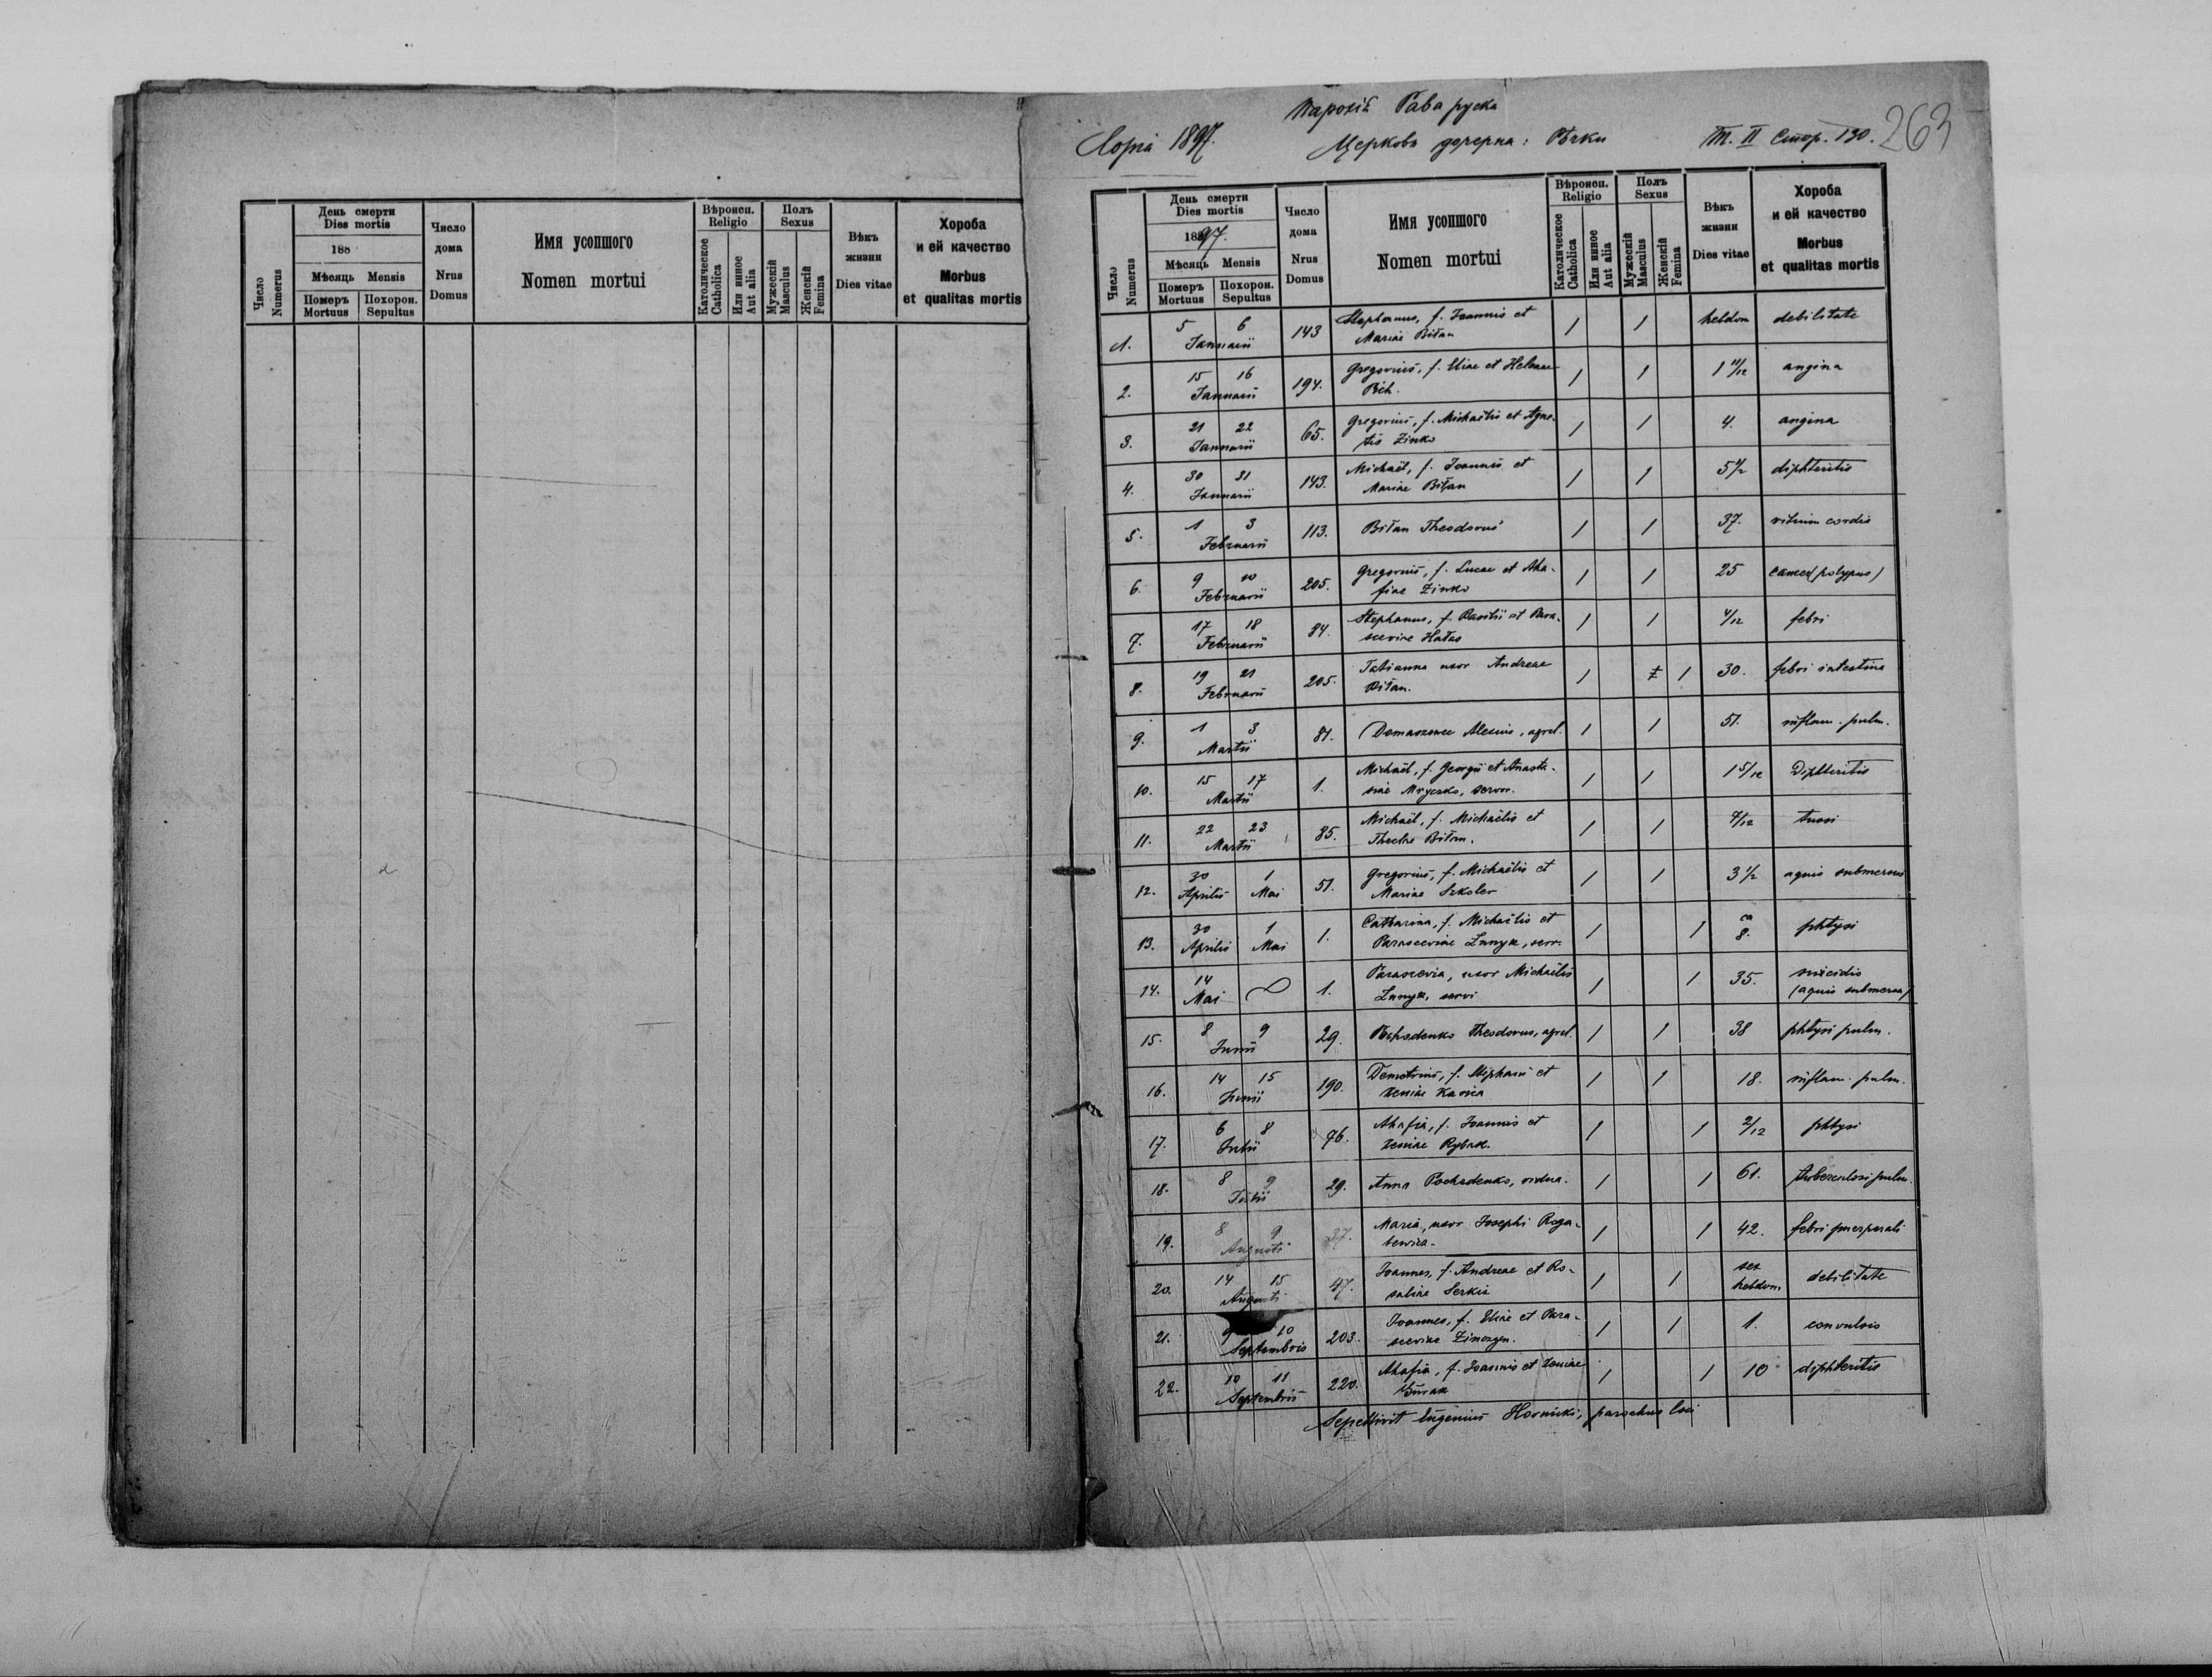 День смерти
Dies mortis
188
Мѣсяць Mensis
Померъ Mortuus
Похорон. Sepultus
Число Numerus
Число дома Nrus Domus
Имя усопшого
Nomen mortui
Вѣроисп. Religio
Католическое Catholica
Или инное Aut alia
Полъ Sexus
Мужескій Masculus
Женскій Femina
Вѣкъ жизни Dies vitae
Хороба и ей качество
Morbus et qualitas mortis
263
Парохія Рава руска
Copia 1897. Церковь дочерна: Рѣчки Т. II Стор. 130.
День смерти
Dies mortis
1897.
Мѣсяць Mensis
Померъ Mortuus
Похорон. Sepultus
Число Numerus
Число дома Nrus Domus
Имя усопшого
Nomen mortui
Вѣроисп. Religio
Католическое Catholica
Или инное Aut alia
Полъ Sexus
Мужескій Masculus
Женскій Femina
Вѣкъ жизни Dies vitae
Хороба и ей качество
Morbus et qualitas mortis
1. 5 6 Januarii 143 Stephanus, f. Joannis et Mariae Biłan / / hebdom debilitate
2. 15 16 Januarii 194. Gregorius, f. Eliae et Helenae / / 1 11/12 angina
3. 21 22 Januarii 65. Gregorius, f. Michaëlis et Agnetis Zinko / / 4. angina
4. 30 31 Januarii 143. Michaël, f. Joannis et Mariae Biłan / / 5 1/2 diphteritis
5. 1 3 Februarii 113. Biłan Theodorus / / 37. vitium cordis
6. 9 10 Februarii 205. Gregorius, f. Lucae et Ahafiae Zinko / / 25 cancer (polypus)
7. 17 18 Februarii 84. Stephanus, f. Basilii et Parasceviae Hałas / / 4/12 febri
8. 19 21 Februarii 205. Tatianna uxor Andreae Biłan. / / 30. febri intestina
9. 1 3 Martii 81. Domaszowec Alexius, agrel. / / 51. inflam. pulm.
10. 15 17 Martii 1. Michaël, f. Georgii et Anastasiae Mryczko, servor. / / 1 5/12 Diphteritis
11. 22 23 Martii 85. Michaël, f. Michaëlis et Theclae Biłan. / / tussi
12. 30 Aprilis 1 Mai 51. Gregorius, f. Michaëlis et Mariae Szkoler / / 3 1/2 aquis submersus
13. 30 Aprilis 1 Mai 1. Catharina, f. Michaëlis et Parasceviae, serv. / / ca 8. phtysi
14. 14 Mai 1. Parascevia, uxor Michaëlis, servi / / 35. suicidio (aquis submersa)
15. 8 9 Junii 29. Pochodenko Theodorus, agrel. / / 38 phtysi pulm.
16. 14 15 Junii 190. Demetrius, f. Stephani et Xeniae / / 18. inflam. pulm.
17. 6 8 Julii 76. Ahafia, f. Joannis et Xeniae Rybak. / / 2/12 phtysi
18. 8 9 Julii 29. Anna Pochodenko, vidua. / / 61. tuberculosi pulm.
19. 8 9 Augusti 37. Maria, uxor Josephi / / 42. febri puerperali
20. 14 15 Augusti 47. Joannes, f. Andreae et Rosaliae Serkis / / sex hebdom debilitate
21. 9 10 Septembris 203. Joannes, f. Eliae et Parasceviae / / 1. convulsio
22. 10 11 Septembris 220. Ahafia, f. Joannis et Xeniae / / 10 diphteritis
Sepelivit Eugenius Hornicki, parochus loci